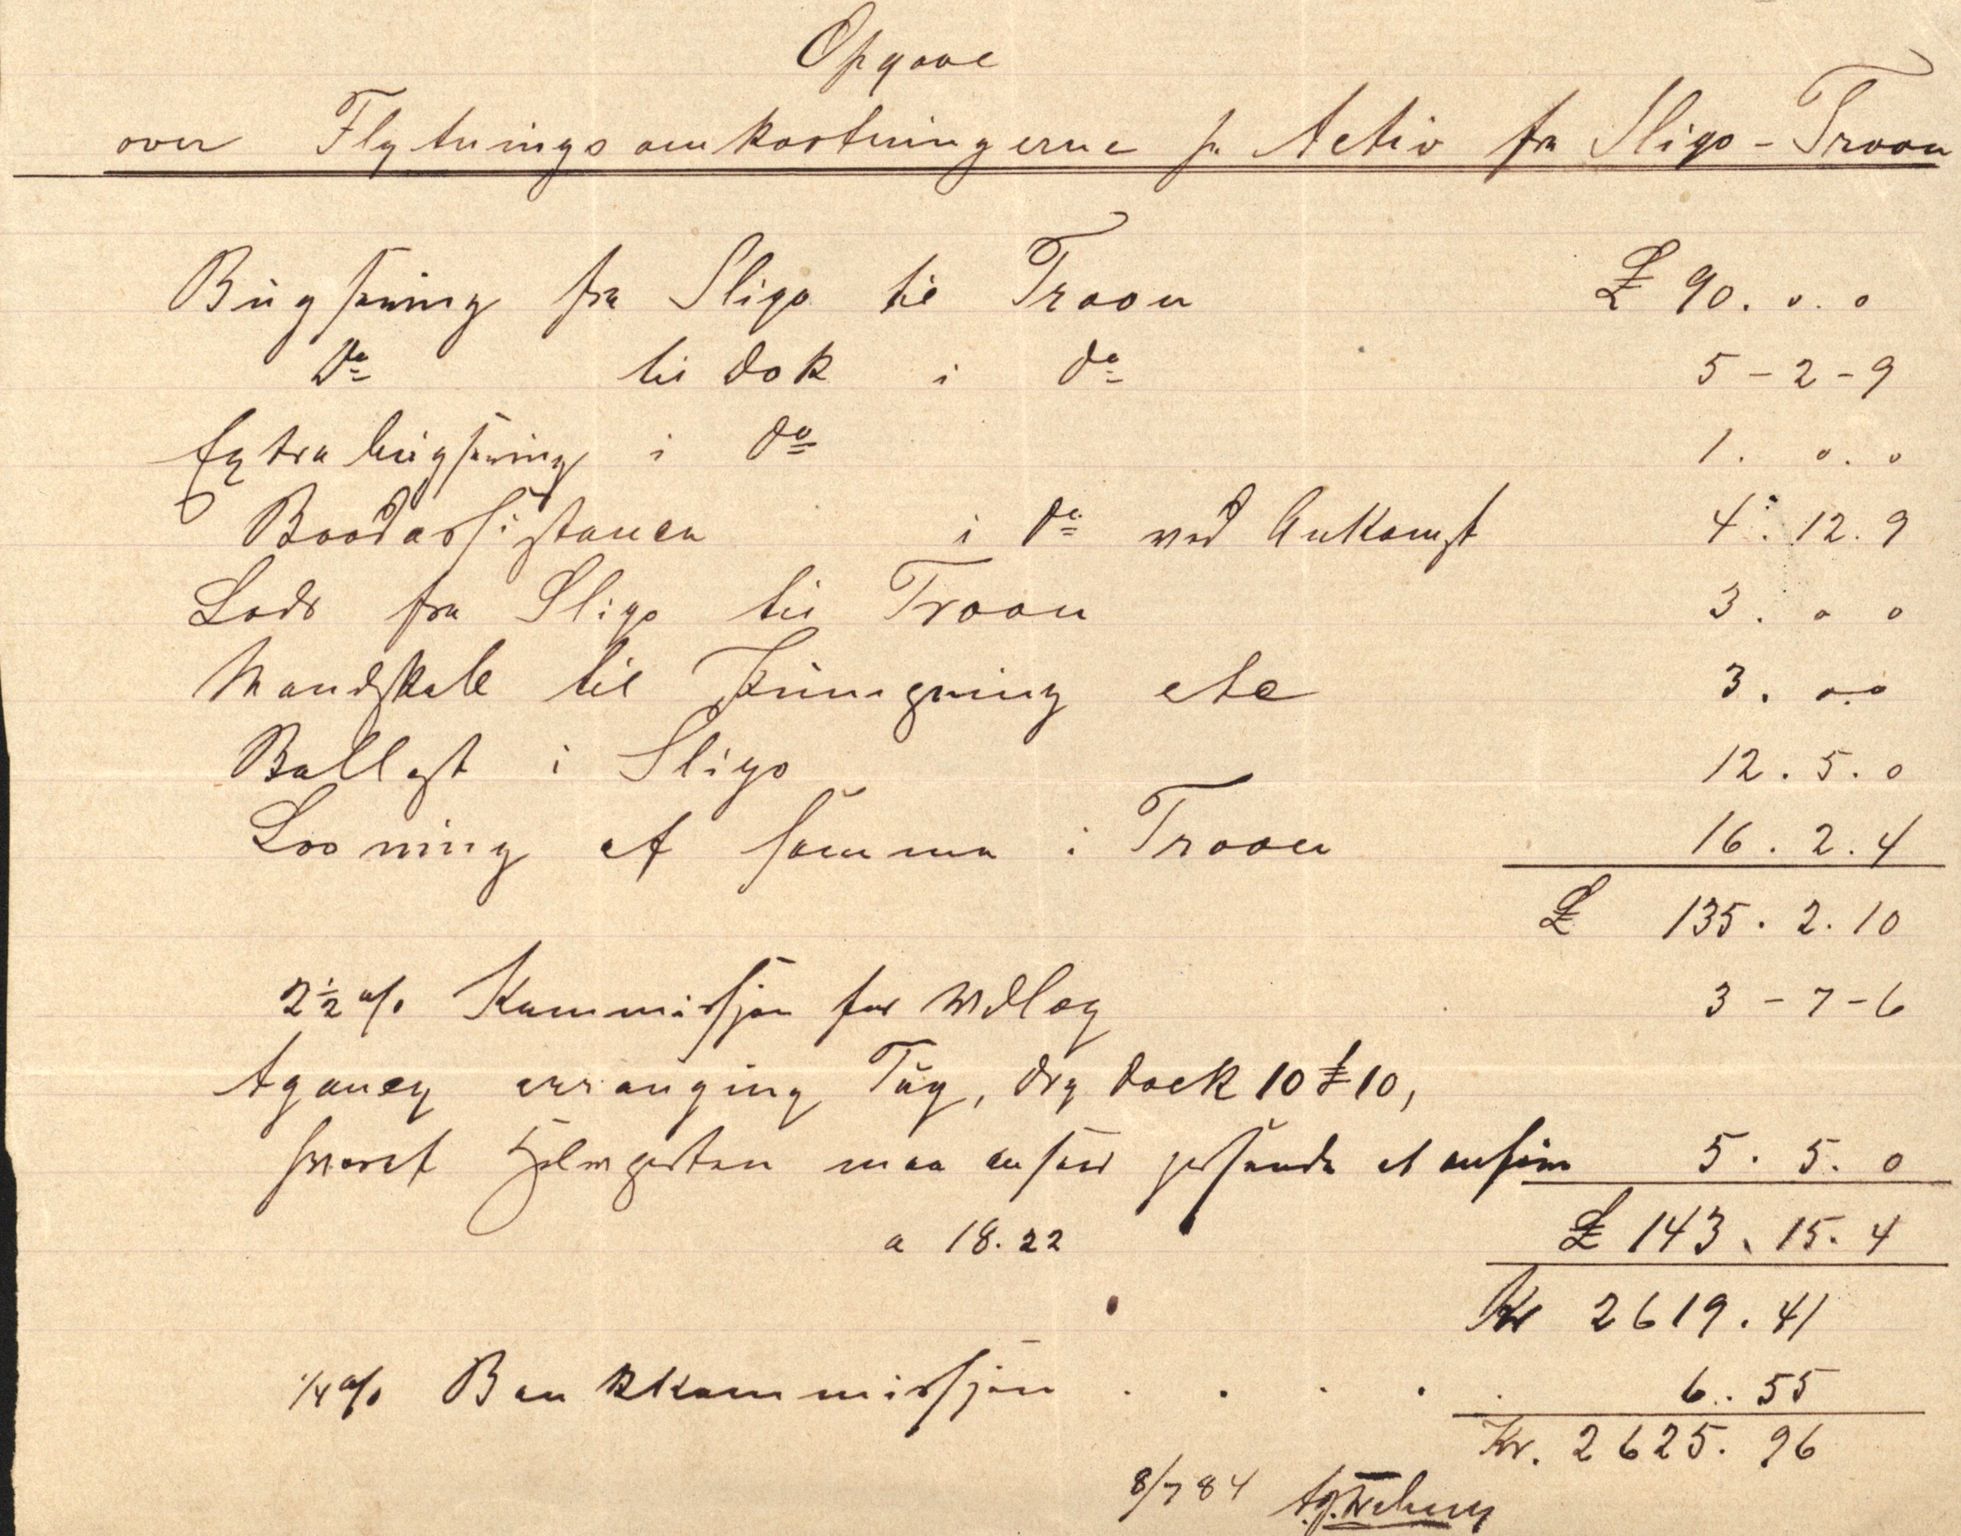 Opgave
over Flytningsomkostningerne pr Activ fra Sligo - Troon
Bugsering fra Sligo til Troon £ 90. 0. 0
Do til Dok i do 5 - 2 - 9
Extra bugsering i do 1. 0. 0
Baadassistance i do ved Ankomst 4. 12. 9
Lods fra Sligo til Troon 3. 0 0
Mandskab til etc 3. 0.0
Ballast i Sligo 12. 5. 0
Losning af samme i Troon 16. 2. 4
£ 135. 2. 10
2½ % Kommissjon for Udlæg 3 - 7 - 6
Agency arranging Tug, dry dock 10 £ 10,
hvoraf Halvparten maa ansees at 5. 5. 0
a 18.22 £ 143. 15. 4
Kr 2619. 41
1/4 % Bankkommissjon . . . . . 6. 55
Kr. 2625. 96
8/7 84